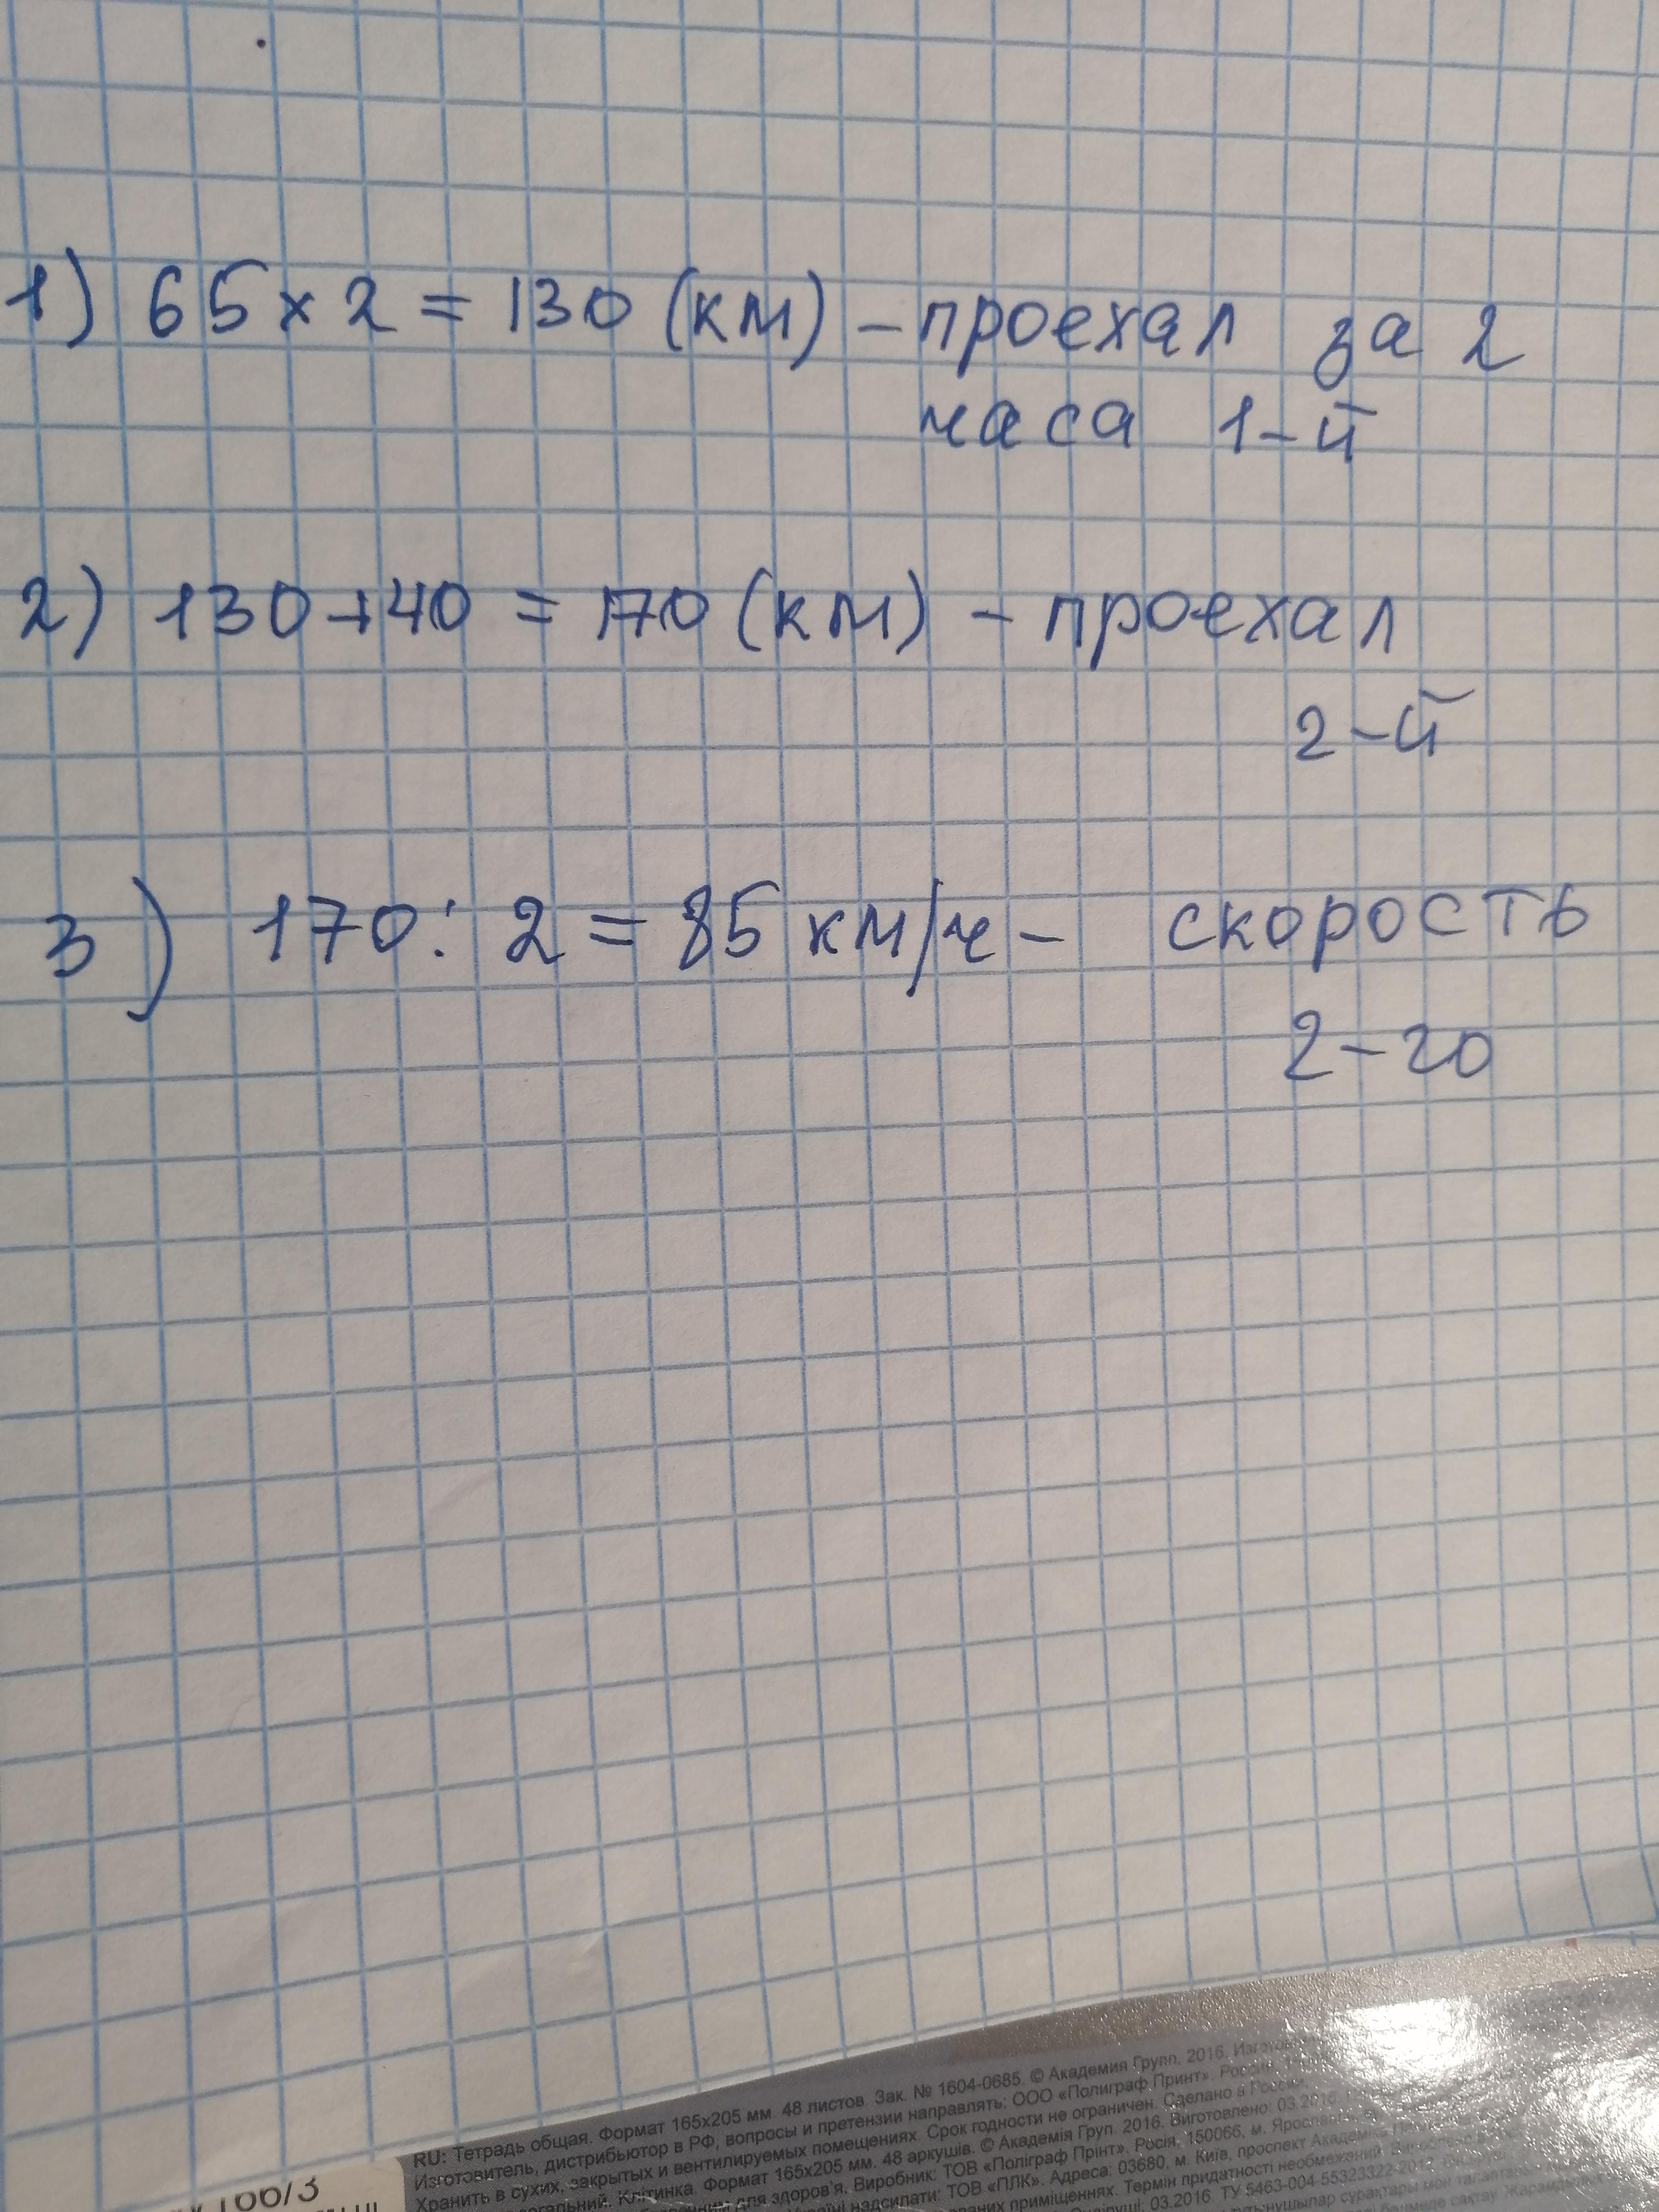 1) 65 x 2 = 130 (км) – проехал за 2
часа 1-й
2) 130 + 40 = 170 (км) – проехал
2-й
3) 170 : 2 = 85 км/ч – скорость
2-го
RU: Тетрадь общая. Формат 165х205 мм. 48 листов. Зак. № 1604-0685. © Академия Групп, 2016.
Изготовитель, дистрибьютор в РФ, вопросы и претензии направлять: ООО «Полиграф Принт». Россия,
Хранить в сухих, закрытых и вентилируемых помещениях. Срок годности не ограничен. Сделано в России.
Клітинка. Формат 165х205 мм. 48 аркушів. © Академія Груп, 2016. Виготовлено: 03.2016.
для здоров'я. Виробник: ТОВ «Поліграф Прінт». Росія, 150066, м. Ярославль,
надсилати: ТОВ «ПЛК». Адреса: 03680, м. Київ, проспект Академіка
приміщеннях. Термін придатності необмежений.
03.2016. ТУ 5463-004-55323322-2012.
166/3